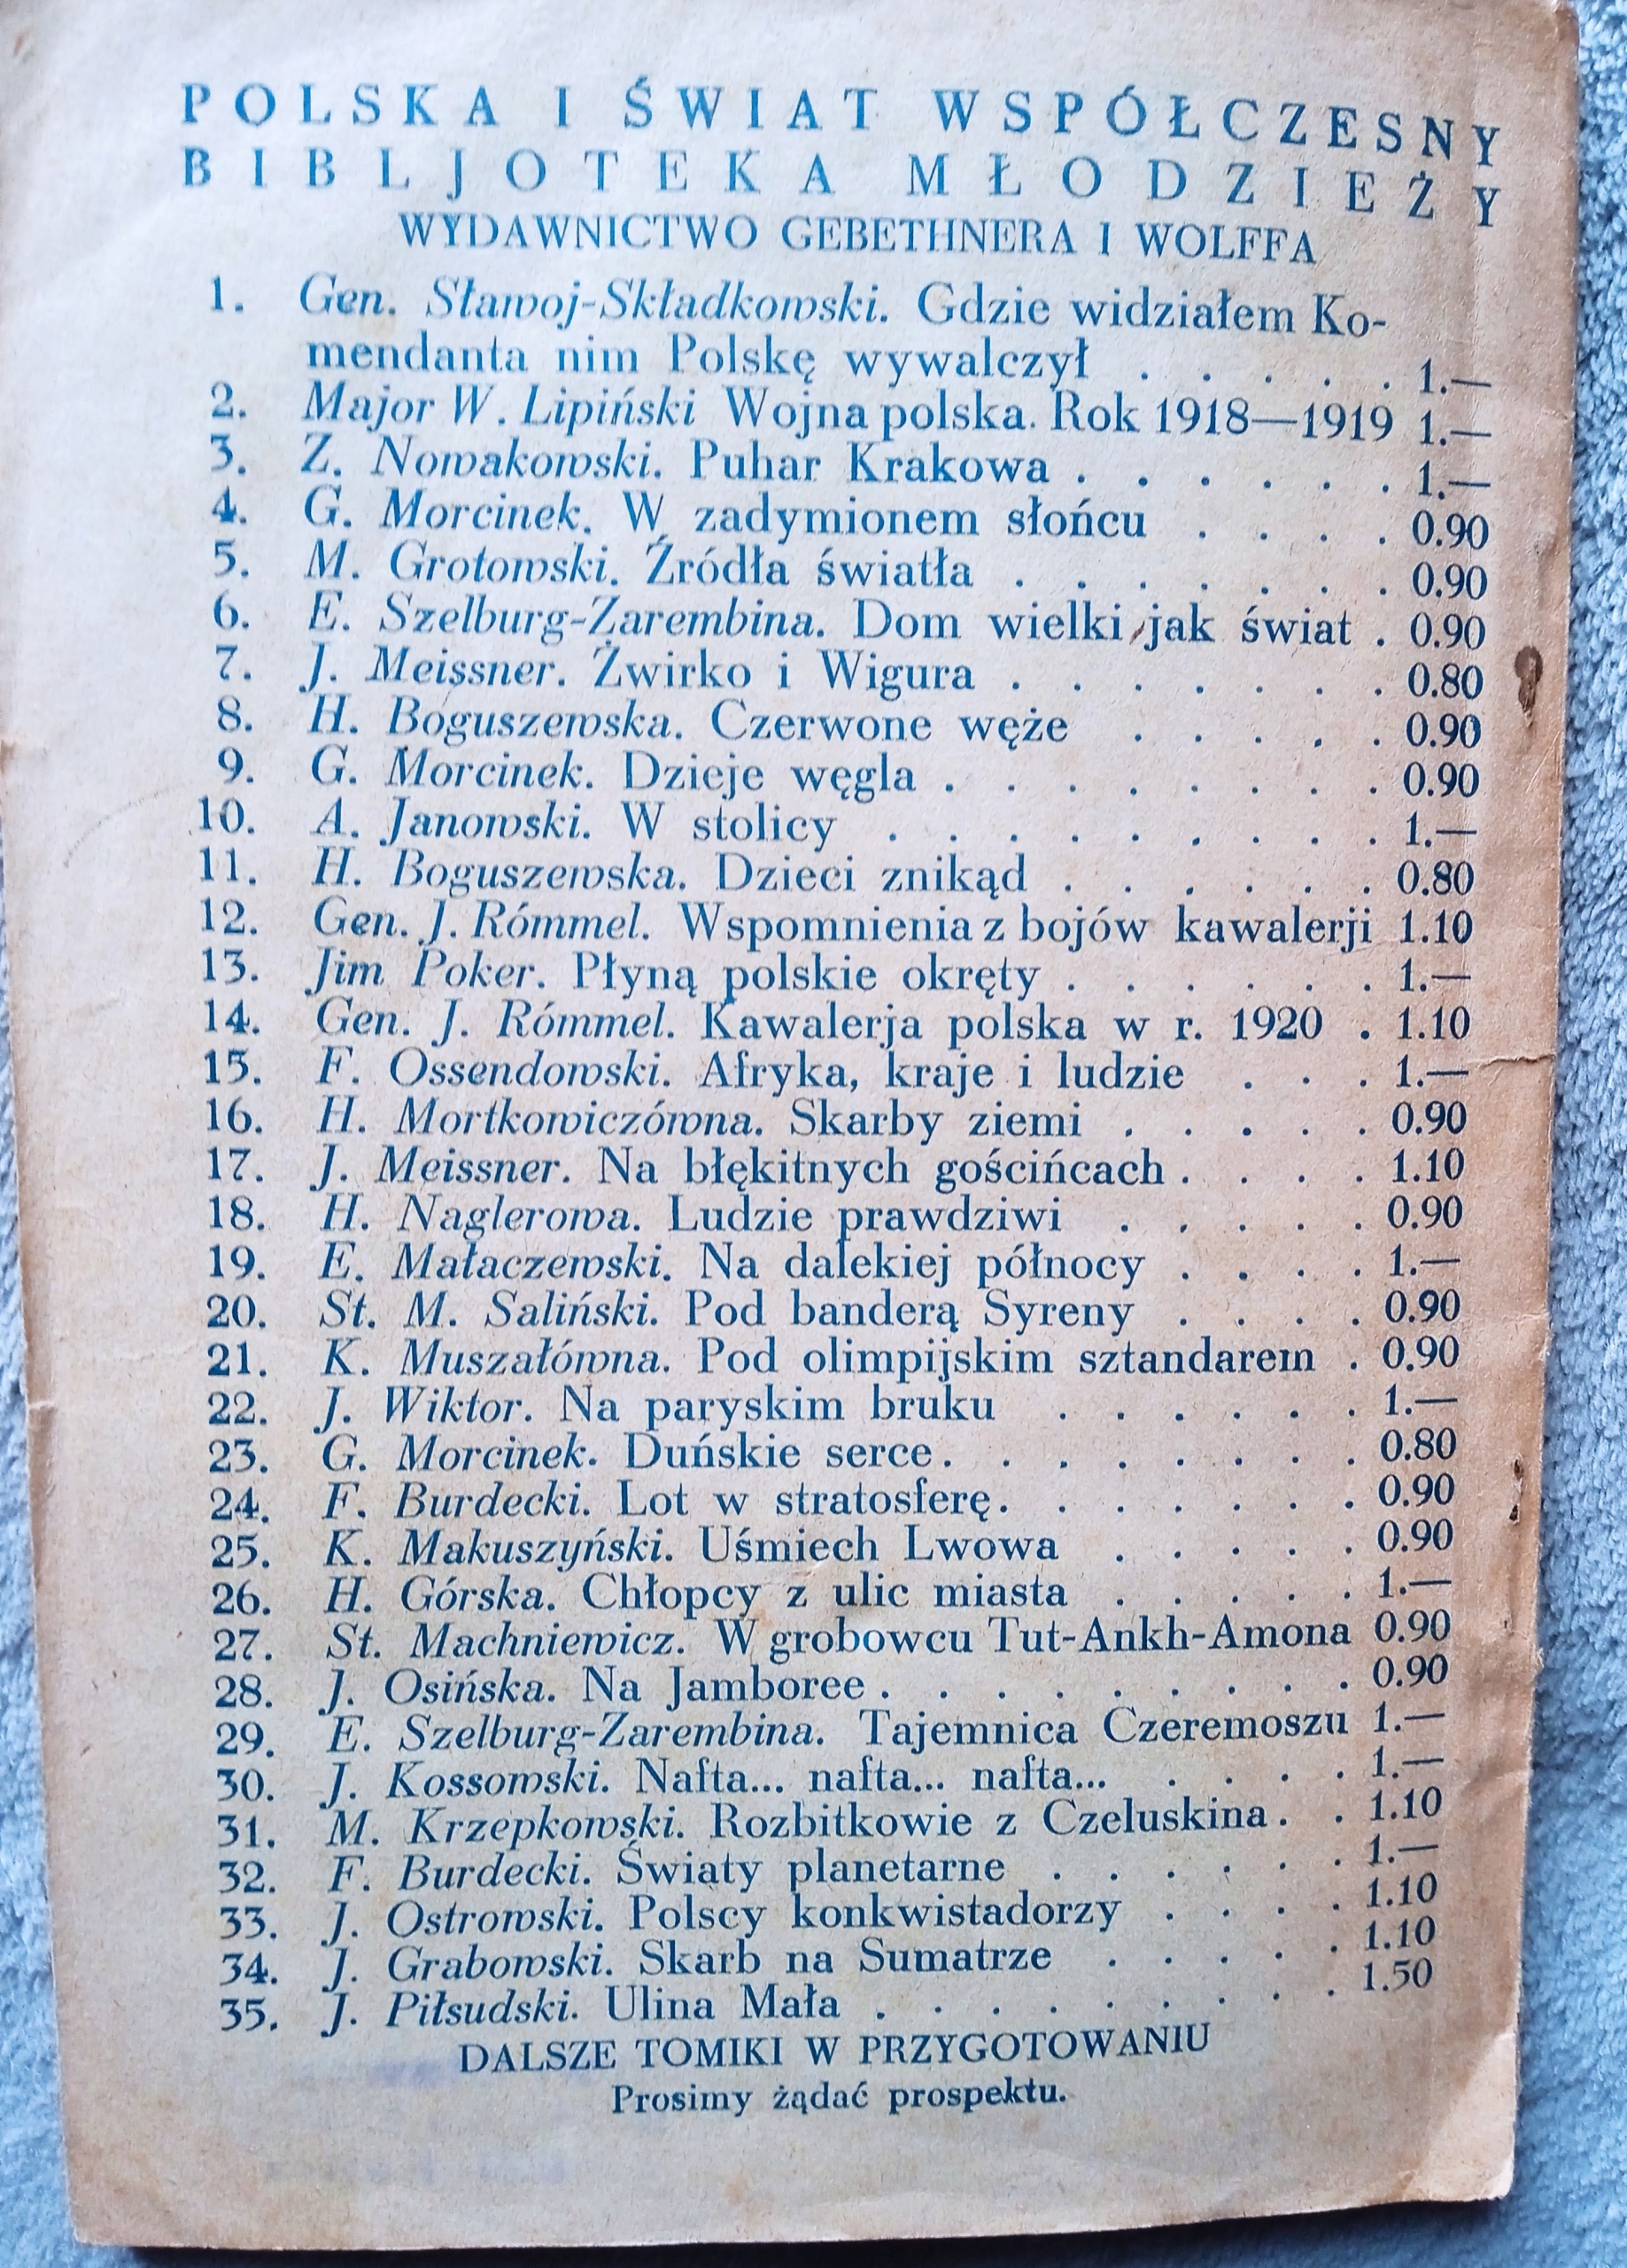 POLSKA I ŚWIAT WSPÓŁCZESNY
BIBLJOTEKA MŁODZIEŻY
WYDAWNICTWO GEBETHNERA I WOLFFA
1. Gen. Sławoj-Składkowski. Gdzie widziałem Ko-
mendanta nim Polskę wywalczył . . . . . 1.—
2. Major W. Lipiński Wojna polska. Rok 1918—1919 1.—
3. Z. Nowakowski. Puhar Krakowa . . . . . . 1.—
4. G. Morcinek. W zadymionem słońcu . . . . 0.90
5. M. Grotowski. Źródła światła . . . . . . . 0.90
6. E. Szelburg-Zarembina. Dom wielki jak świat . 0.90
7. J. Meissner. Żwirko i Wigura . . . . . . . 0.80
8. H. Boguszewska. Czerwone węże . . . . . 0.90
9. G. Morcinek. Dzieje węgla . . . . . . . . 0.90
10. A. Janowski. W stolicy . . . . . . . . . 1.—
11. H. Boguszewska. Dzieci znikąd . . . . . . 0.80
12. Gen. J. Rómmel. Wspomnienia z bojów kawalerji 1.10
13. Jim Poker. Płyną polskie okręty . . . . . . 1.—
14. Gen. J. Rómmel. Kawalerja polska w r. 1920 . 1.10
15. F. Ossendowski. Afryka, kraje i ludzie . . . 1.—
16. H. Mortkowiczówna. Skarby ziemi . . . . . 0.90
17. J. Meissner. Na błękitnych gościńcach . . . . 1.10
18. H. Naglerowa. Ludzie prawdziwi . . . . . 0.90
19. E. Małaczewski. Na dalekiej północy . . . . 1.—
20. St. M. Saliński. Pod banderą Syreny . . . . 0.90
21. K. Muszałówna. Pod olimpijskim sztandarem . 0.90
22. J. Wiktor. Na paryskim bruku . . . . . . 1.—
23. G. Morcinek. Duńskie serce . . . . . . . . 0.80
24. F. Burdecki. Lot w stratosferę . . . . . . . 0.90
25. K. Makuszyński. Uśmiech Lwowa . . . . . 0.90
26. H. Górska. Chłopcy z ulic miasta . . . . . 1.—
27. St. Machniewicz. W grobowcu Tut-Ankh-Amona 0.90
28. J. Osińska. Na Jamboree . . . . . . . . . 0.90
29. E. Szelburg-Zarembina. Tajemnica Czeremoszu 1.—
30. J. Kossowski. Nafta... nafta... nafta... . . . . 1.—
31. M. Krzepkowski. Rozbitkowie z Czeluskina . . 1.10
32. F. Burdecki. Światy planetarne . . . . . . 1.—
33. J. Ostrowski. Polscy konkwistadorzy . . . . 1.10
34. J. Grabowski. Skarb na Sumatrze . . . . . 1.10
35. J. Piłsudski. Ulina Mała . . . . . . . . . 1.50
DALSZE TOMIKI W PRZYGOTOWANIU
Prosimy żądać prospektu.